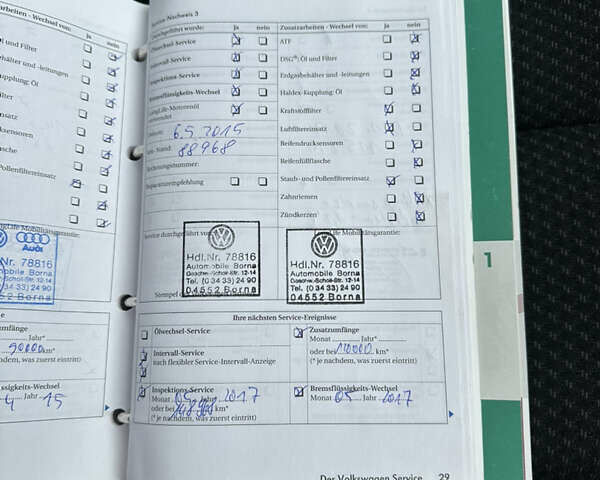 arbeiten - Wechsel von:
nein
Öl und Filter
behälter und -leitungen
Kupplung: Öl
ensatz
sensoren
e
Pollenfiltereinsatz
LongLife Mobilitätsgarantie:
Audi
Nr. 78816
mobile Borna
Tel. (0 34 33) 24 90
04552 Borna
umfänge
Jahr*
90000 km*
(* je nachdem, was zuerst eintritt)
ssigkeits-Wechsel
4 Jahr 15
Service-Nachweis 3
Durchgeführt wurde:
Ja
nein
Zusatzarbeiten - Wechsel von:
Ja
nein
Ölwechsel-Service
ATF
Intervall-Service
DSG®: Öl und Filter
Inspektions-Service
Erdgasbehälter und -leitungen
Bremsflüssigkeits-Wechsel
Haldex-Kupplung: Öl
LongLife-Motorenöl
verwendet
Kraftstofffilter
Datum: 6.5.2015
Luftfiltereinsatz
km-Stand: 88968
Reifendrucksensoren
Rechnungsnummer:
Reifenfüllflasche
Reparaturempfehlung
Staub- und Pollenfiltereinsatz
Zahnriemen
Zündkerzen
Service durchgeführt von:
LongLife Mobilitätsgarantie:
Hdl.Nr. 78816
Automobile Borna
Geschw.-Scholl-Str. 12-14
Tel. (0 34 33) 24 90
04552 Borna
Hdl.Nr. 78816
Automobile Borna
Geschw.-Scholl-Str. 12-14
Tel. (0 34 33) 24 90
04552 Borna
1
Ihre nächsten Service-Ereignisse
Ölwechsel-Service
Intervall-Service
nach flexibler Service-Intervall-Anzeige
Zusatzumfänge
Monat Jahr*
oder bei 110000 km*
(* je nachdem, was zuerst eintritt)
Inspektions-Service
Monat 05 Jahr 2017
oder bei 148968 km*
(* je nachdem, was zuerst eintritt)
Bremsflüssigkeits-Wechsel
Monat 05 Jahr 2017
Der Volkswagen Service 29